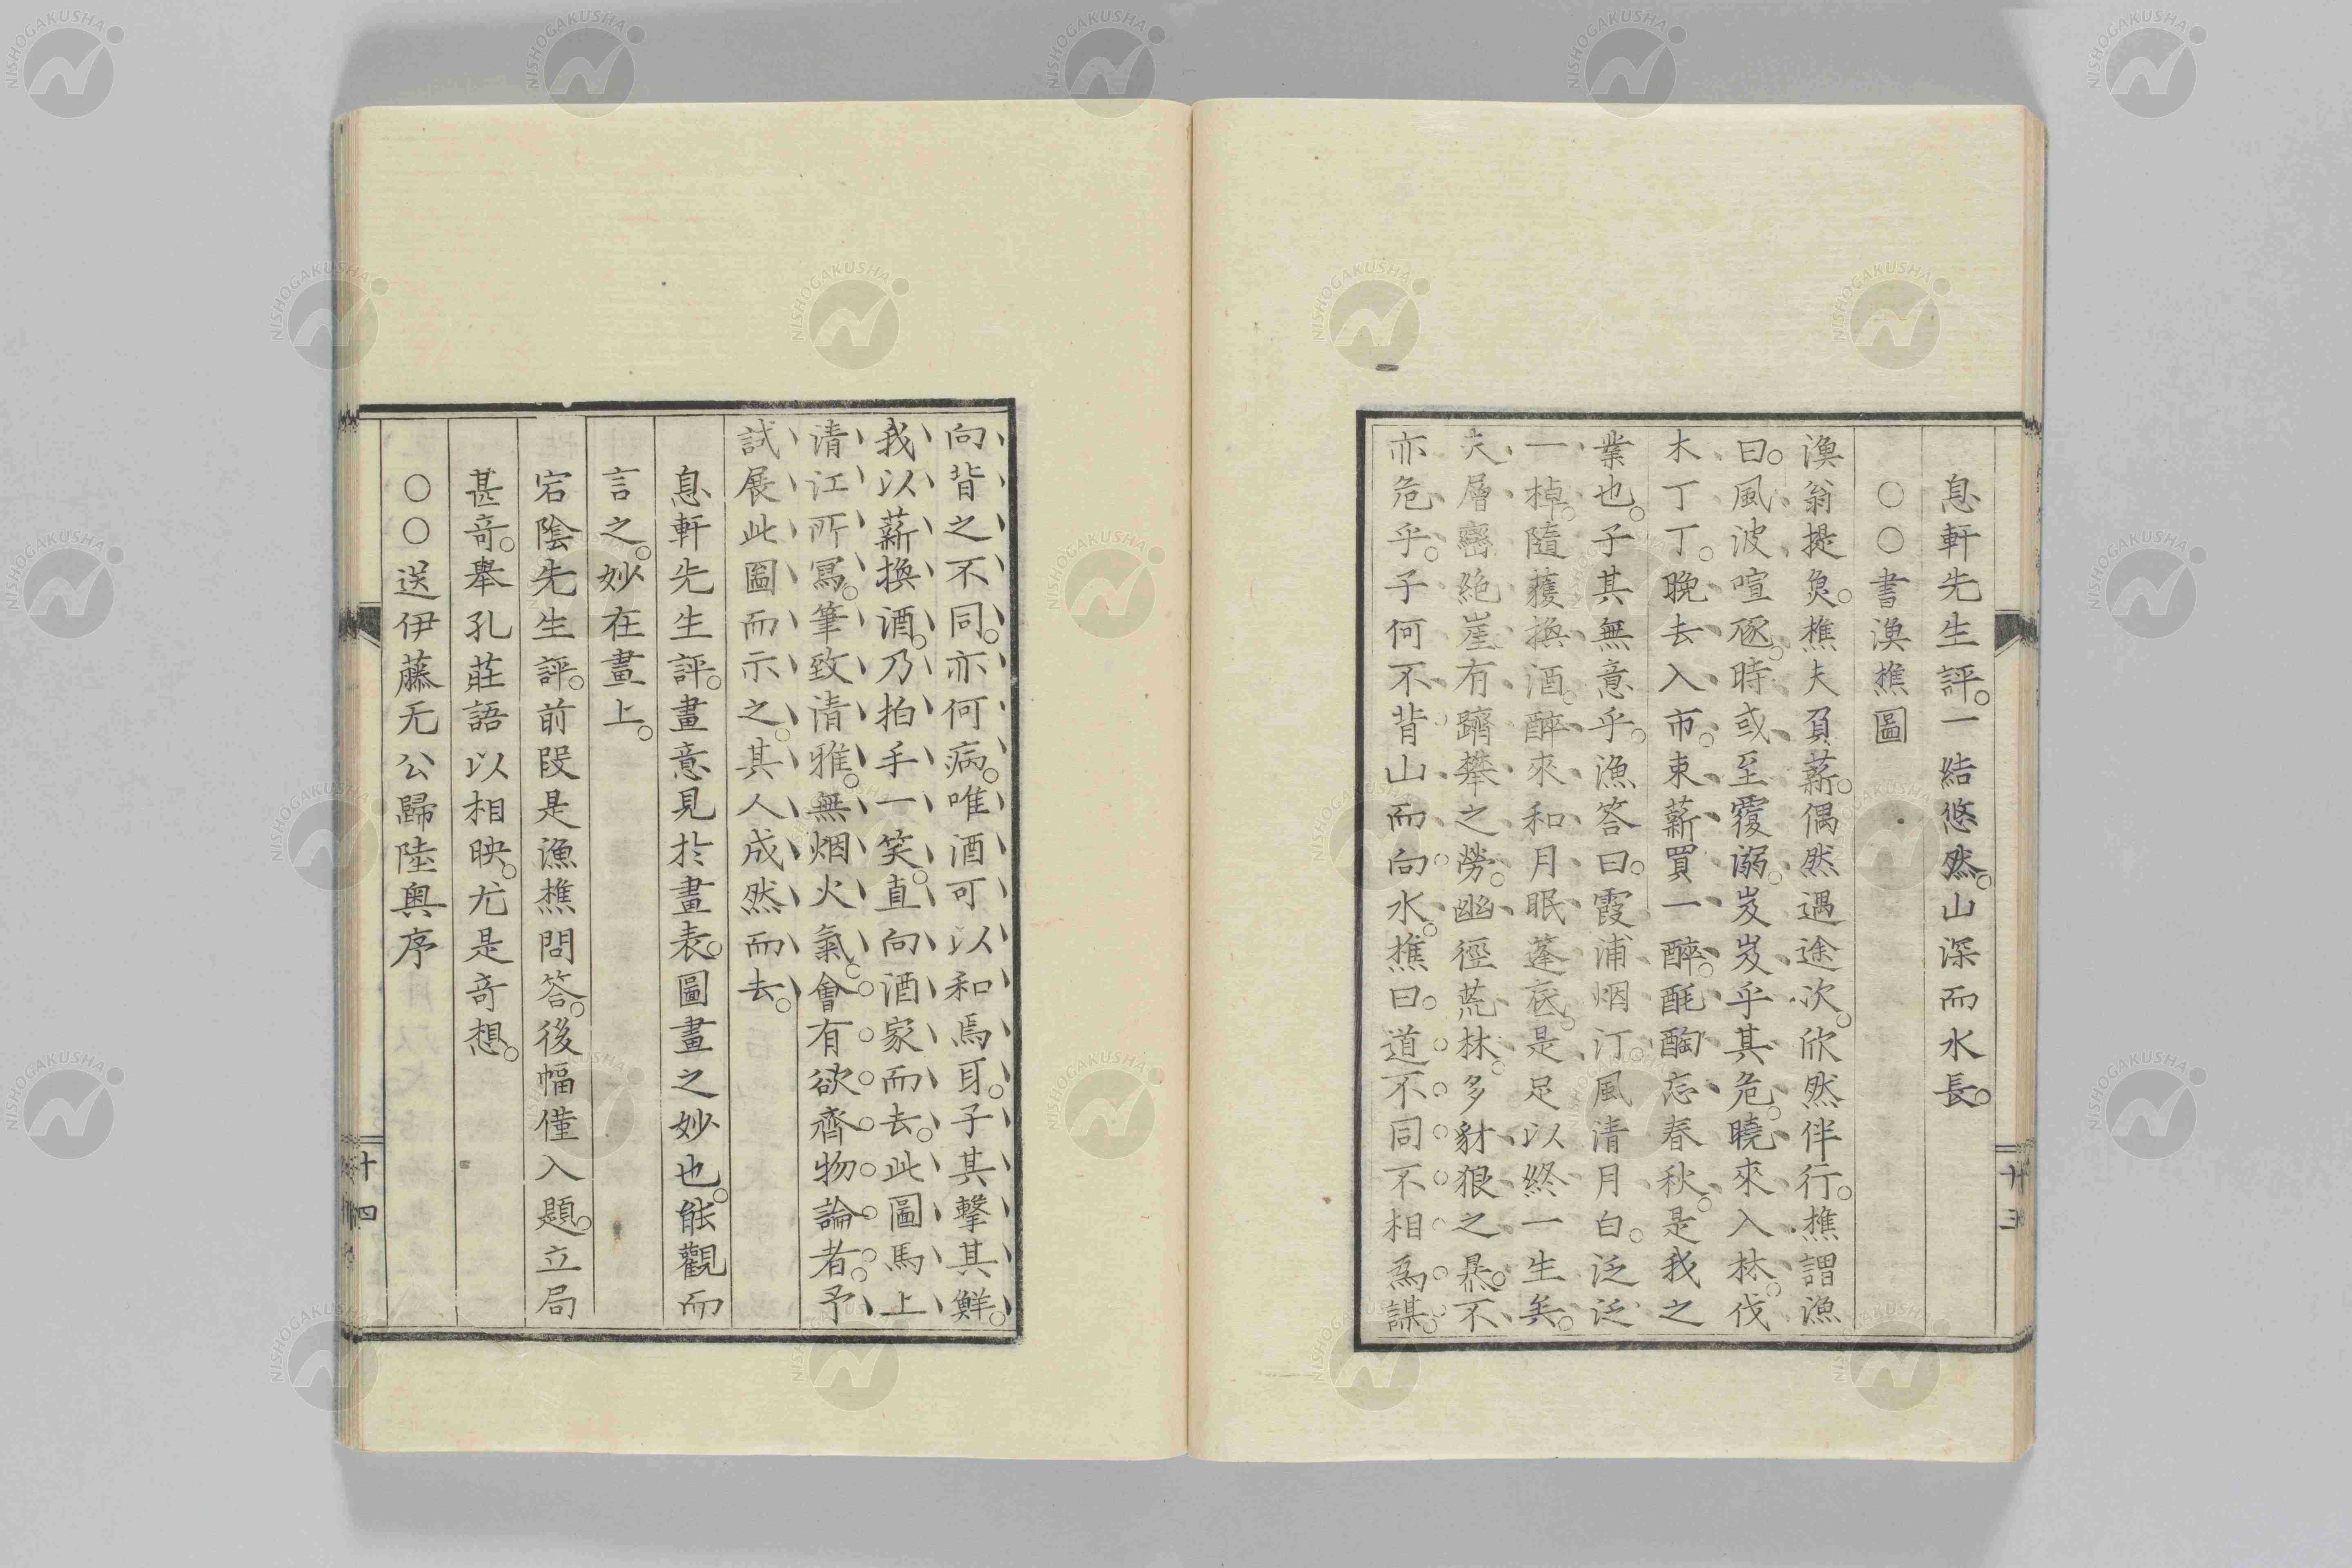 息軒先生評。一結悠然。山深而水長。
○○書漁樵圖
漁翁提魚。樵夫負薪。偶然遇途次。欣然伴行。樵謂漁
曰。風波喧豗。時或至覆溺。岌岌乎其危。曉來入林。伐
木丁丁。晚去入市。束薪買一醉。酕醄忘春秋。是我之
業也。子其無意乎。漁答曰。霞浦烟汀。風清月白。泛泛
一棹。隨獲換酒。醉來和月眠蓬底。是足以終一生矣。
夫層巒絶崖。有躋攀之勞。幽徑荒林。多豺狼之暴。不
亦危乎。子何不背山而向水。樵曰。道不同不相爲謀。
十三
向背之不同。亦何病。唯酒可以和焉耳。子其擊其鮮。
我以薪換酒。乃拍手一笑。直向酒家而去。此圖馬上
清江所寫。筆致清雅。無烟火氣。會有欲齊物論者。予
試展此圖而示之。其人成然而去。
息軒先生評。畫意見於畫表。圖畫之妙也。能觀而
言之。妙在畫上。
宕陰先生評。前段是漁樵問答。後幅僅入題。立局
甚奇。舉孔莊語以相映。尤是奇想。
○○送伊藤无公歸陸奥序
十四
NISHOGAKUSHA